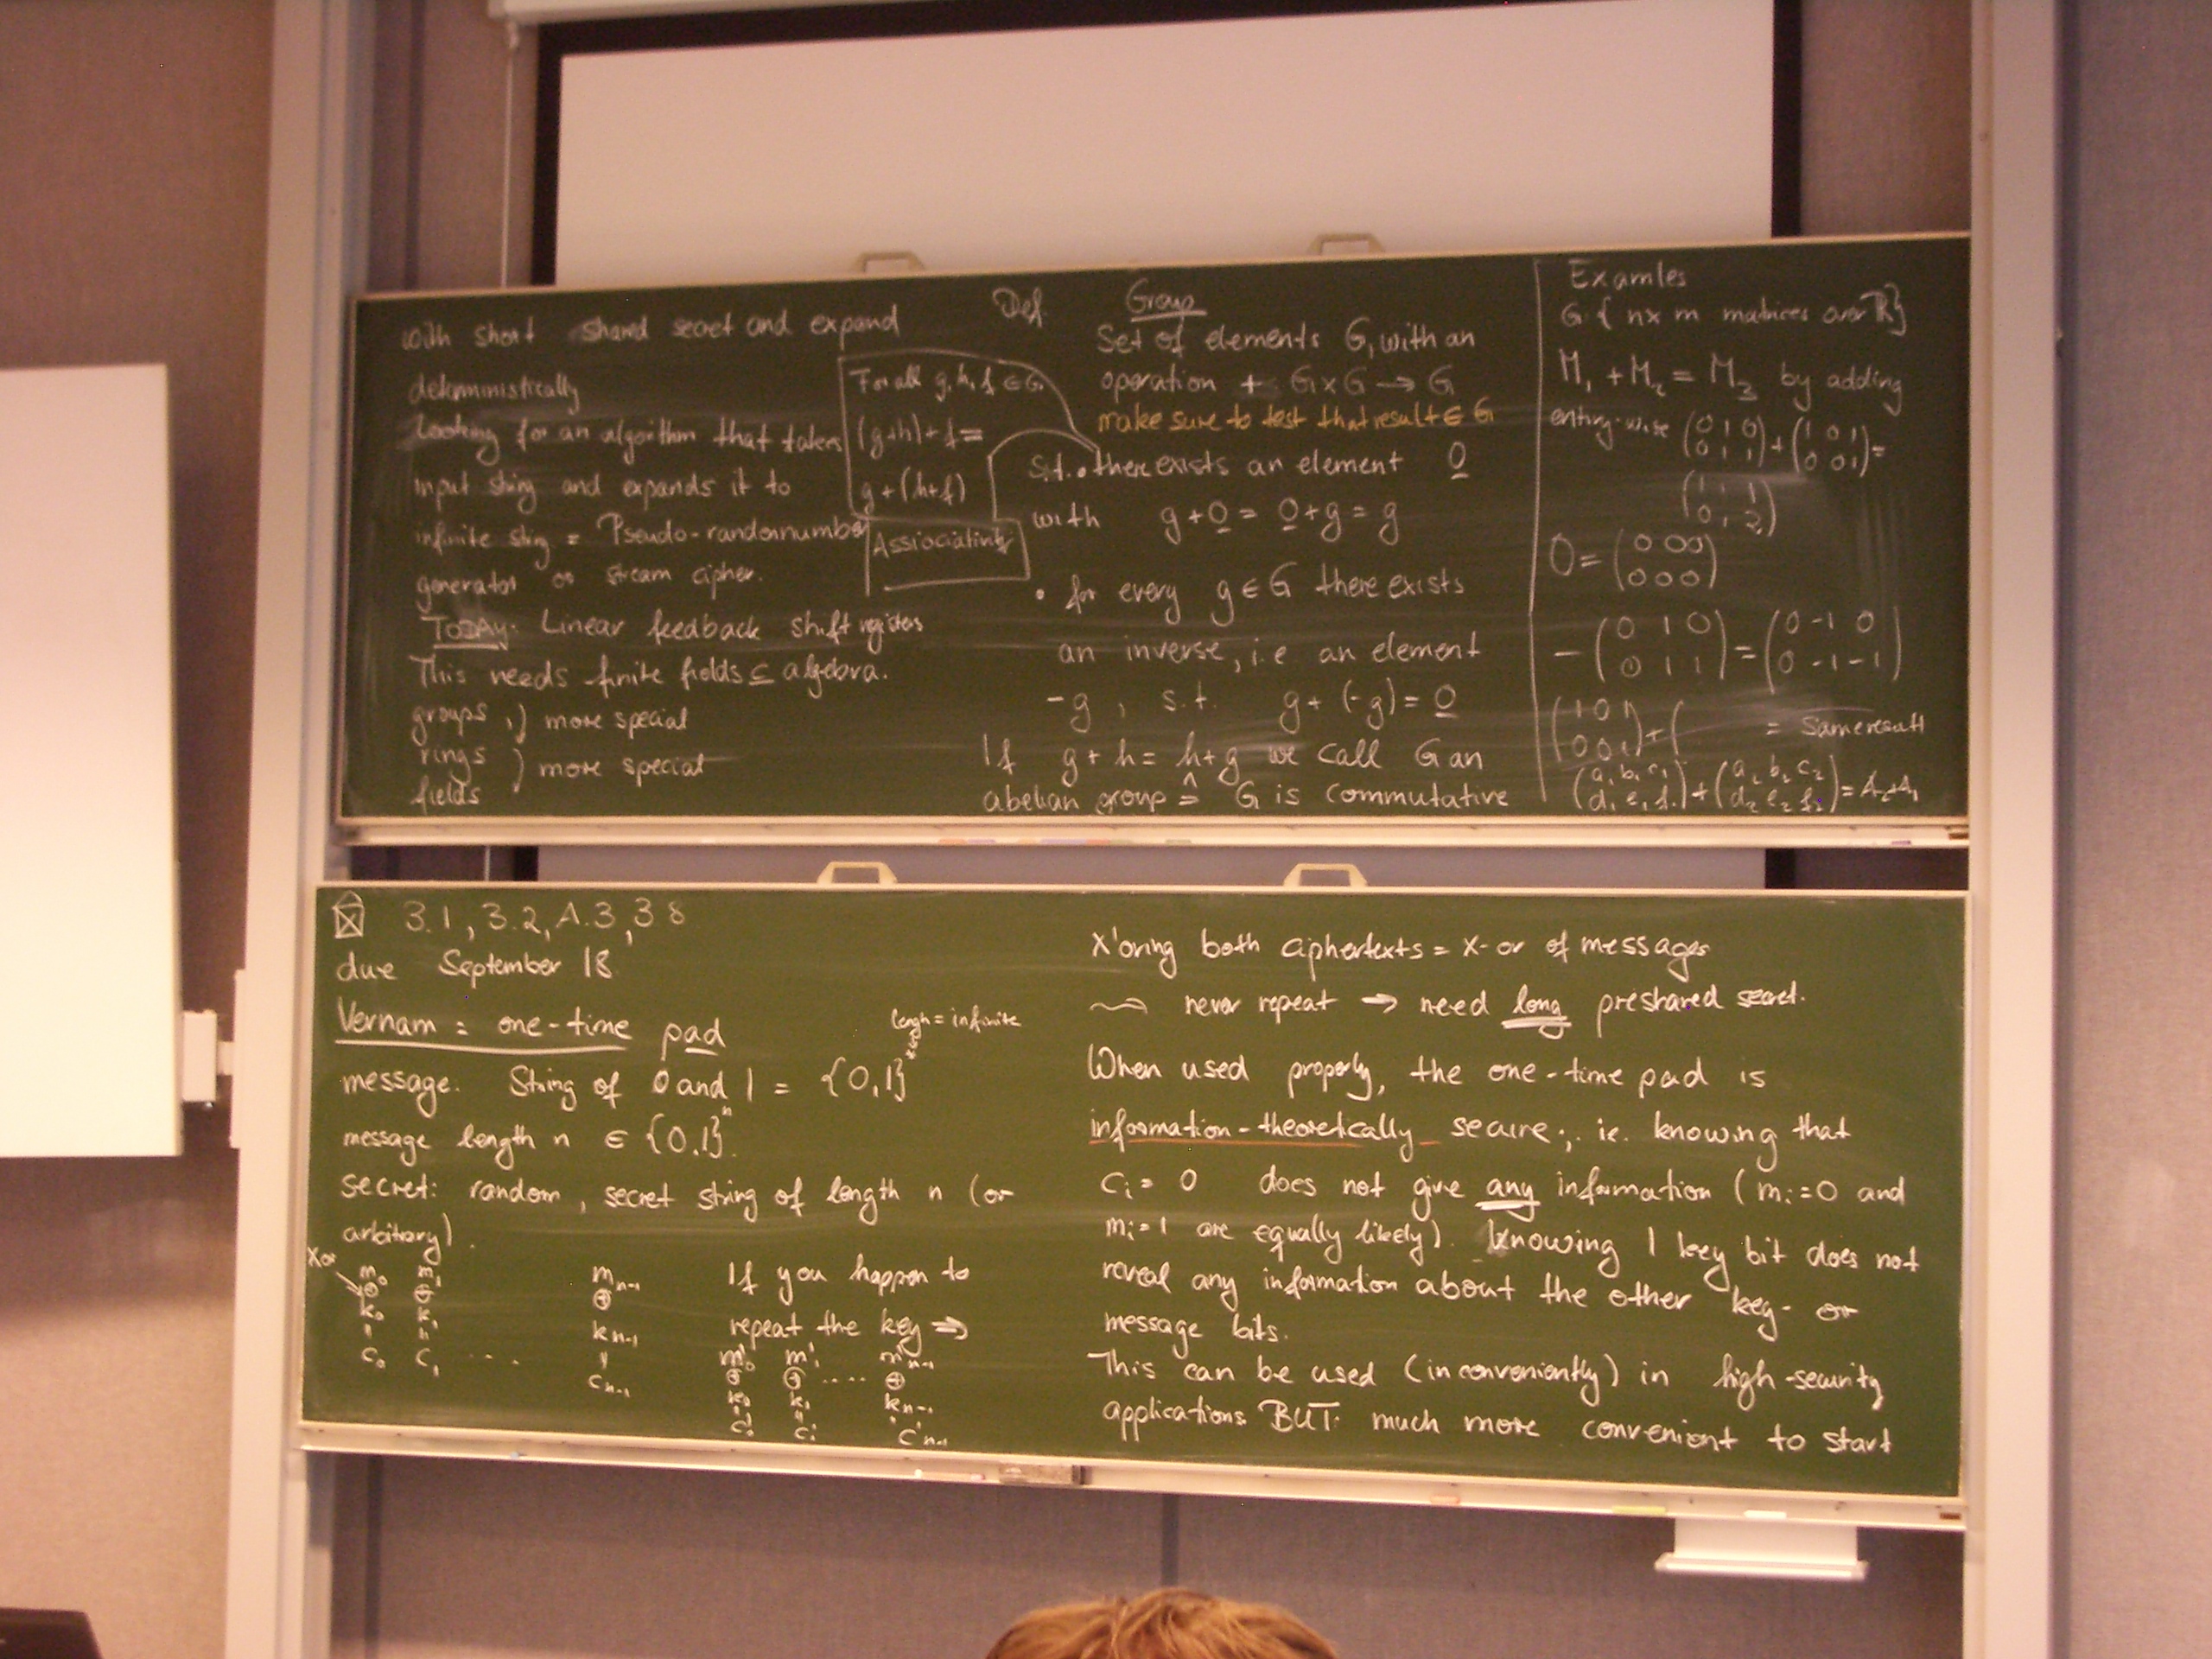 with short shared secret and expand
deterministically
Looking for an algorithm that takes
input string and expands it to
infinite string = Pseudo-randomnumber
generator or stream cipher.
TODAY: Linear feedback shift registers
This needs finite fields ⊆ algebra.
groups ) more special
rings ) more special
fields
For all g, h, f ∈ G
(g+h)+f =
g+(h+f)
Assiociativity
Def. Group
Set of elements G, with an
operation + G×G → G
make sure to test that result ∈ G
s.t. • there exists an element 0
with g+0 = 0+g = g
• for every g ∈ G there exists
an inverse, i.e an element
-g, s.t. g+(-g) = 0
If g+h = h+g we call G an
abelian group ≙ G is commutative
Examles
G { n×m matrices over ℝ}
M₁ + M₂ = M₃ by adding
entry-wise (0 1 0 / 0 1 1) + (1 0 1 / 0 0 1) =
(1 1 1 / 0 1 2)
0 = (0 0 0 / 0 0 0)
-(0 1 0 / 0 1 1) = (0 -1 0 / 0 -1 -1)
(1 0 1 / 0 0 1) + ( = same result
(a₁ b₁ c₁ / d₁ e₁ f₁) + (a₂ b₂ c₂ / d₂ e₂ f₂) = A₂+A₁
3.1, 3.2, A.3, 3.8
due September 18
Vernam = one-time pad
lengh = infinite
message: String of 0 and 1 = {0,1}
message length n ∈ {0,1}ⁿ.
secret: random, secret string of length n (or
arbitrary).
xor
m₀ m₁ mₙ₋₁
⊕ ⊕ ⊕
k₀ k₁ kₙ₋₁
" " "
c₀ c₁ .... cₙ₋₁
If you happen to
repeat the key ⇒
m'₀ m'₁ m'ₙ₋₁
⊕ ⊕ .... ⊕
k₀ k₁ kₙ₋₁
" " "
c'₀ c'₁ c'ₙ₋₁
X'oring both ciphertexts = x-or of messages
never repeat → need long preshared secret.
When used properly, the one-time pad is
information-theoretically secure; i.e. knowing that
cᵢ = 0 does not give any information (mᵢ=0 and
mᵢ=1 are equally likely). Knowing 1 key bit does not
reveal any information about the other key- or
message bits.
This can be used (inconveniently) in high-security
applications BUT: much more convenient to start